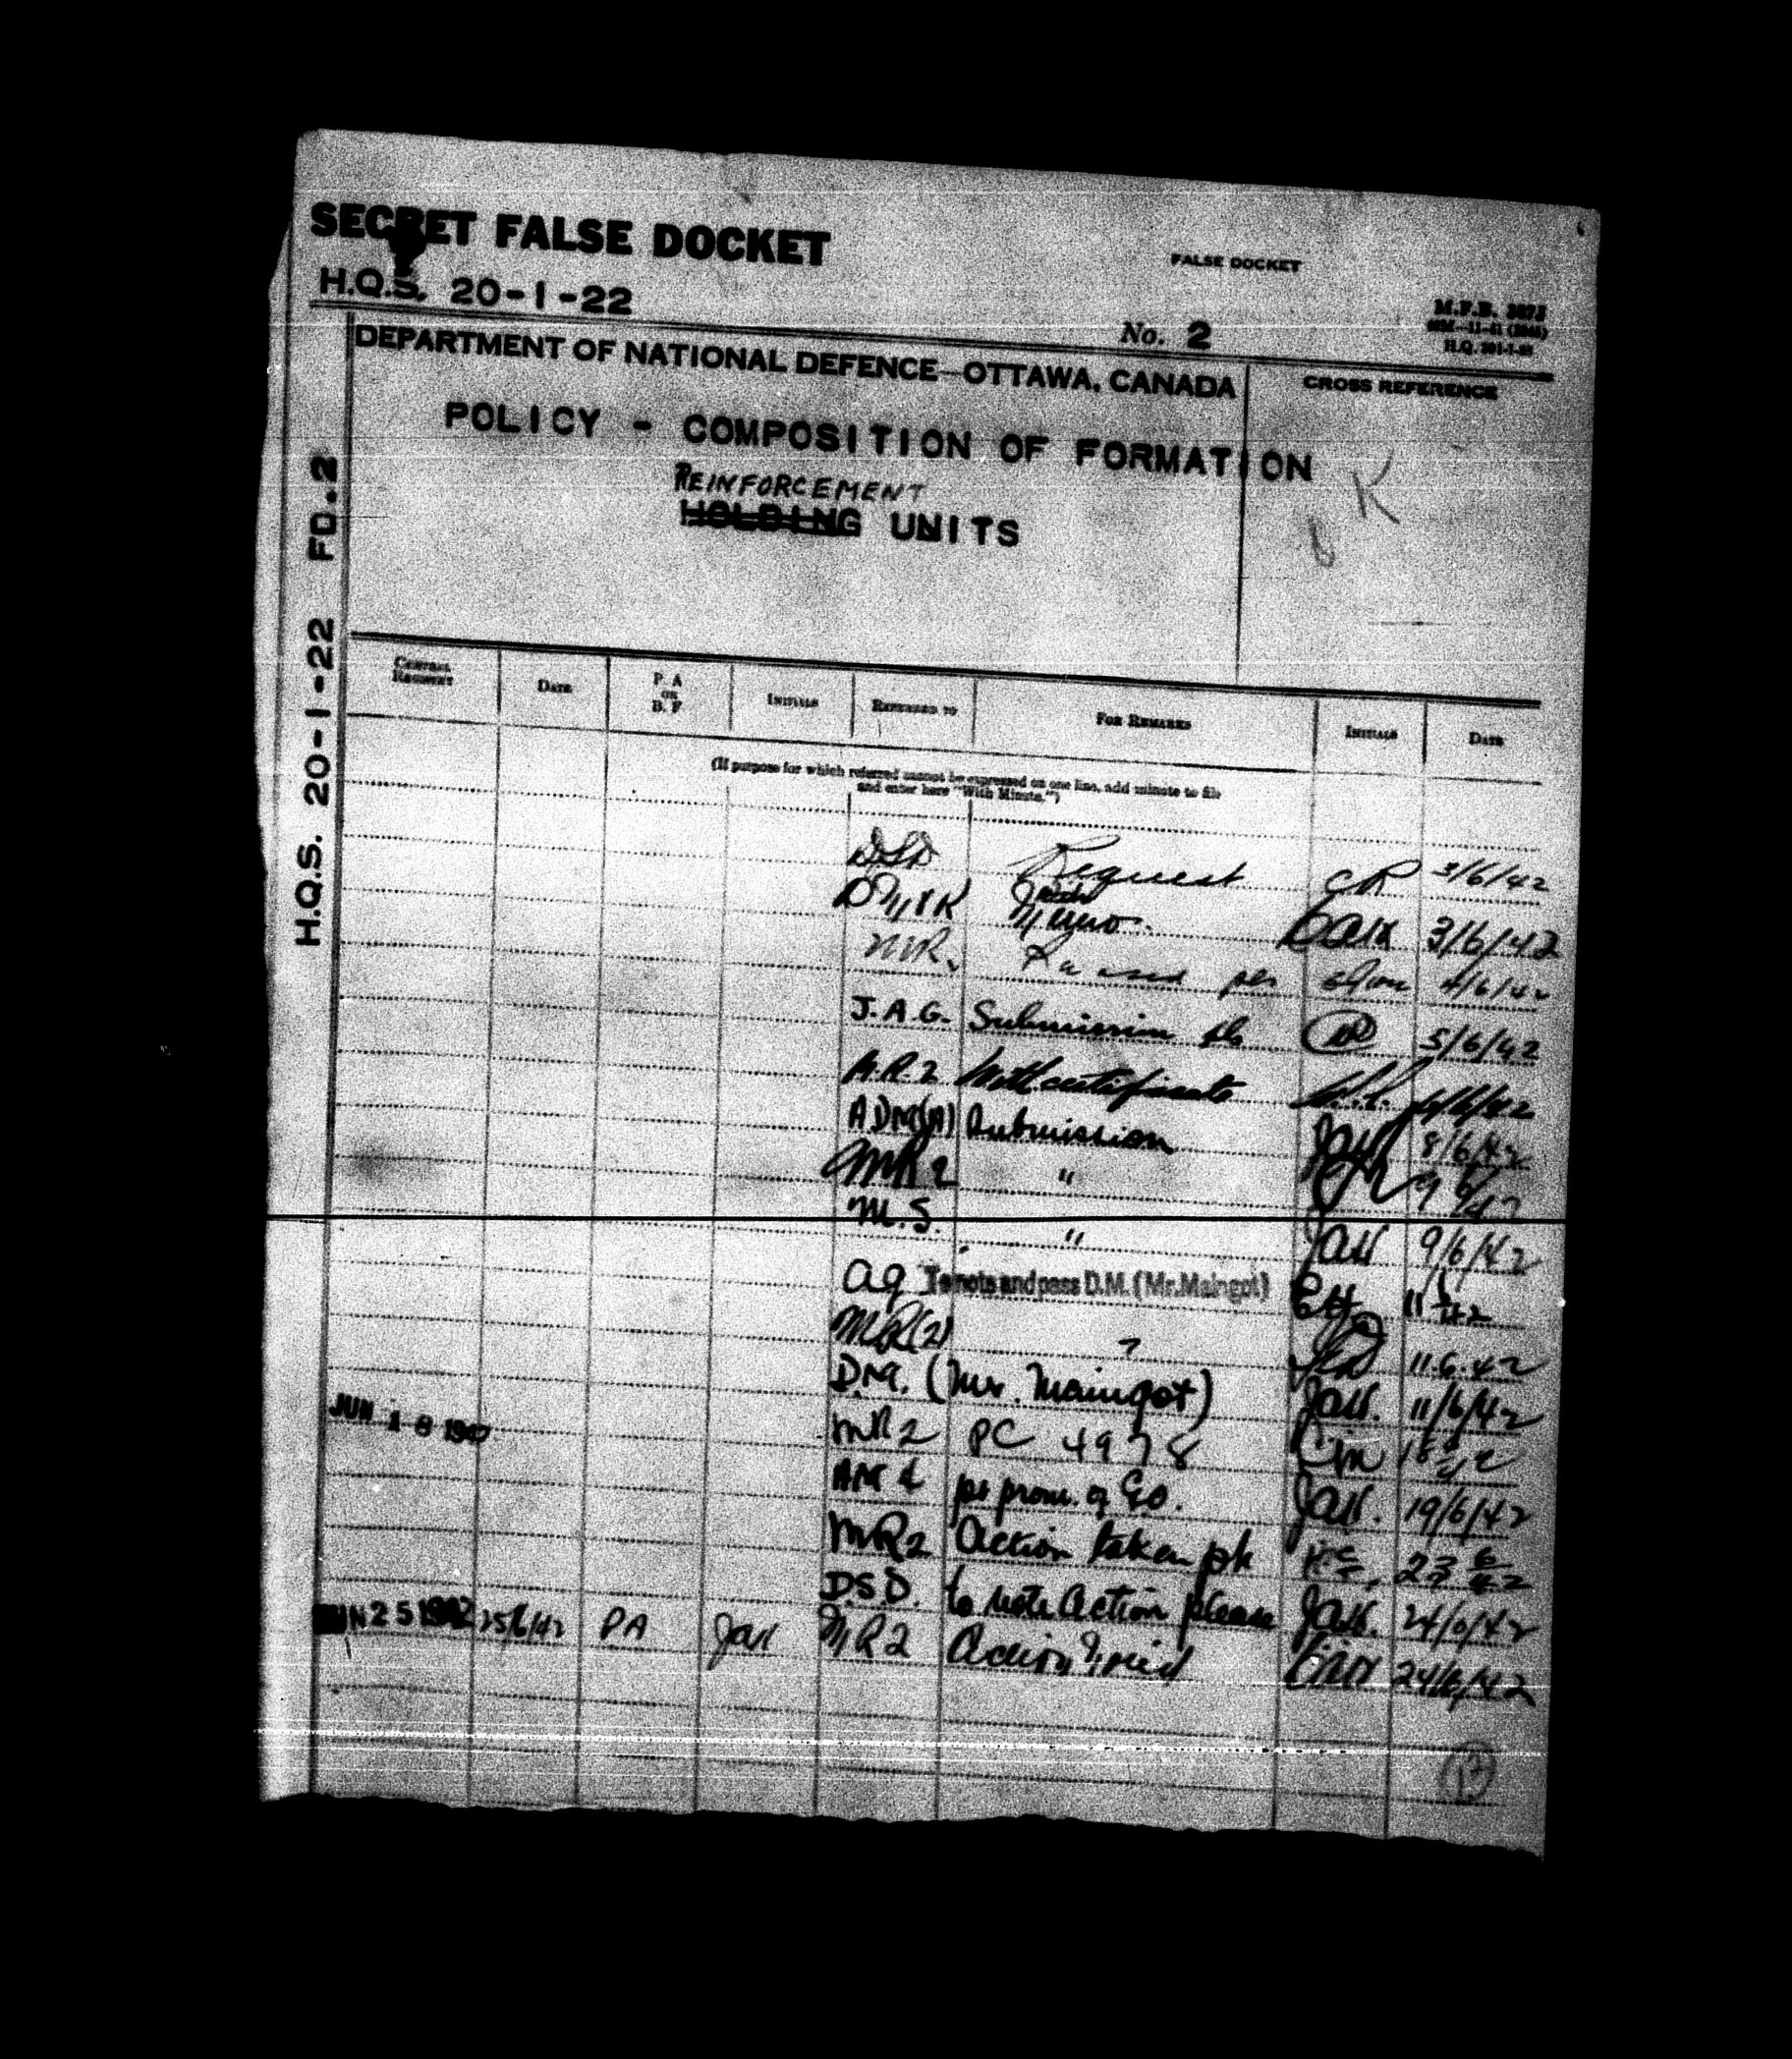 SECRET FALSE DOCKET
FALSE DOCKET
H.Q.S. 20-1-22
No. 2
M.F.B.
DEPARTMENT OF NATIONAL DEFENCE—OTTAWA, CANADA
CROSS REFERENCE
POLICY - COMPOSITION OF FORMATION
K
REINFORCEMENT
HOLDING UNITS
H.Q.S. 20-1-22 FD.2
CENTRAL REGISTRY DATE P. A OR B. F INITIALS REFERRED TO FOR REMARKS INITIALS DATE
(If purpose for which referred cannot be expressed on one line, add minute to file
and enter here "With Minute.")
DSD Request CR 3/6/42
Memo. 3/6/42
MR. per 4/6/42
J.A.G. Submission pls 5/6/42
M.R.2 With certificate 6/6/42
ADM(A) Submission JAK 8/6/42
MR2 " 9 6/42
M.S. " JAK 9/6/42
AG To note and pass D.M. (Mr. Maingot) 11 6/42
MR(2) " 11.6.42
D.M. (Mr. Maingot) JAK. 11/6/42
JUN 18 1942 MR2 PC 4978 18 6/42
pl prom. of GO. JAK. 19/6/42
MR2 Action taken pls 23 6/42
D.S.D. to note action please JAK. 24/6/42
JUN 25 1942 25/6/42 PA JAK MR2 Action 24/6/42